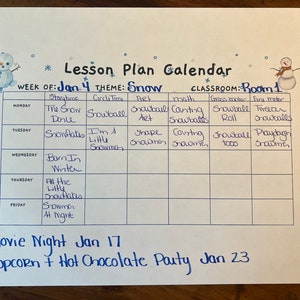 Lesson Plan Calendar
WEEK OF: Jan. 4 THEME: Snow CLASSROOM: Room 1
Storytime Circle Time Art math Gross motor Fine motor
MONDAY The Snow Dance Snowball Snowball Art Counting Snowballs Snowball Roll Snowballs
TUESDAY Snowflakes I'm a Little Snowman Shape Snowmen Counting Snowmen Snowball Toss Playdough Snowmen
WEDNESDAY Born In Winter
THURSDAY All the Little Snowflakes
FRIDAY Snowmen At Night
ovie Night Jan 17
opcorn + Hot Chocolate Party Jan 23